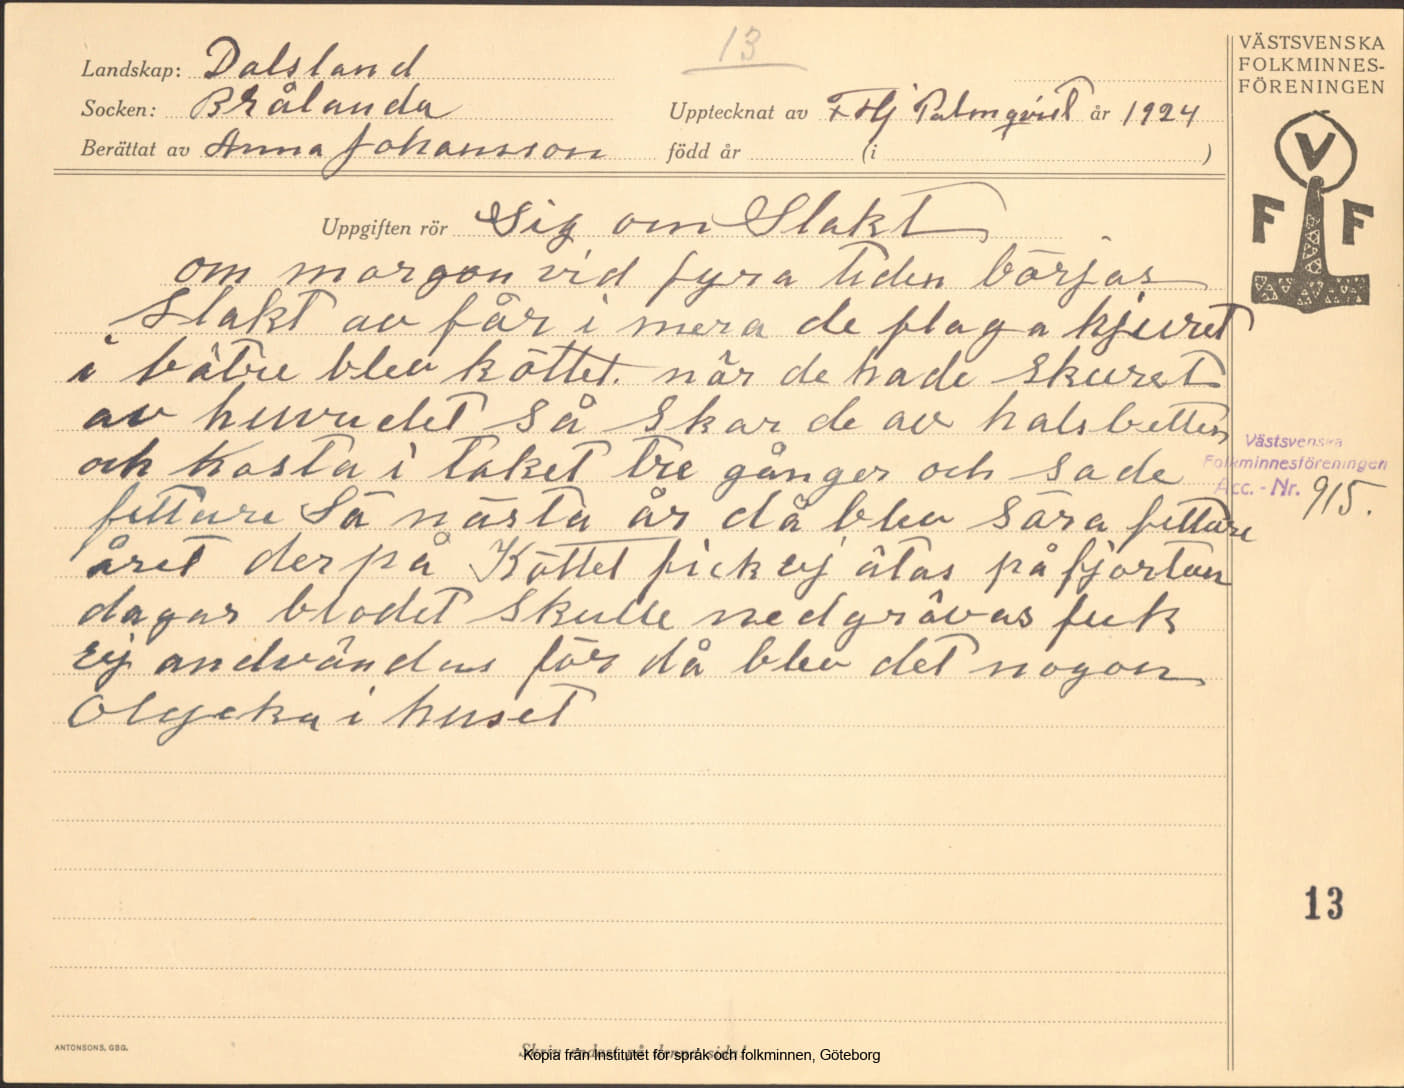 13
Landskap: Dalsland
Socken: Brålanda
Berättat av Anna Johansson
Upptecknat av F Hj Palmqvist år 1924
född år (i )
VÄSTSVENSKA
FOLKMINNES-
FÖRENINGEN
V
F F
Uppgiften rör Sig om Slakt
om morgon vid fyra tiden börjas
Slakt av får i mera de plaga kjuret
i bätre blev köttet. når de hade skuret
av huvudet så skar de av halsbetten
och kasta i taket tre gånger och sade
fettare Så nästa år då blev såra fettare
året der på Köttet fick ej ätas på fjorton
dagar blodet skulle nedgrävas fick
ej andvändas för då blev det nogon
Olycka i huset
Västsvenska
Folkminnesföreningen
Acc. - Nr. 915.
13
ANTONSONS, GBG.
Skriv endast på denna sida!
Kopia från Institutet för språk och folkminnen, Göteborg